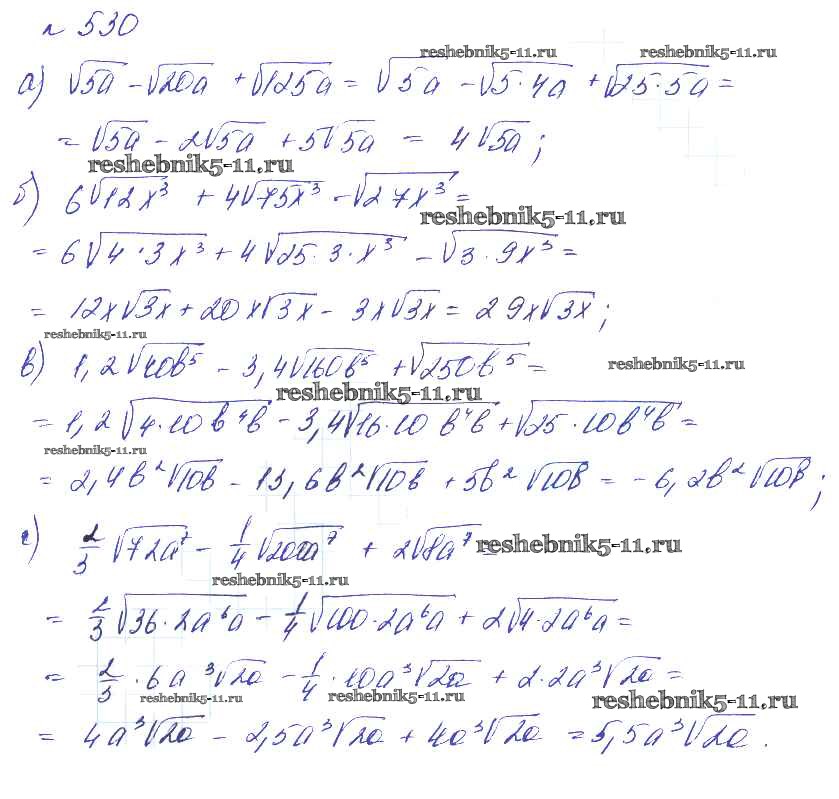 № 530
reshebnik5-11.ru reshebnik5-11.ru
а) √5a − √20a + √125a = √5a − √5·4a + √25·5a =
= √5a − 2√5a + 5√5a = 4√5a;
reshebnik5-11.ru
б) 6√12x³ + 4√75x³ − √27x³ =
reshebnik5-11.ru
= 6√4·3x³ + 4√25·3·x³ − √3·9x³ =
= 12x√3x + 20x√3x − 3x√3x = 29x√3x;
reshebnik5-11.ru
в) 1,2√40b⁵ − 3,4√160b⁵ + √250b⁵ =
reshebnik5-11.ru
reshebnik5-11.ru
= 1,2√4·10b⁴b − 3,4√16·10b⁴b + √25·10b⁴b =
reshebnik5-11.ru
= 2,4b²√10b − 13,6b²√10b + 5b²√10b = −6,2b²√10b;
г) 2/3 √72a⁷ − 1/4 √200a⁷ + 2√8a⁷ =
reshebnik5-11.ru
reshebnik5-11.ru
= 2/3 √36·2a⁶a − 1/4 √100·2a⁶a + 2√4·2a⁶a =
= 2/3 · 6a³√2a − 1/4 · 10a³√2a + 2·2a³√2a =
reshebnik5-11.ru reshebnik5-11.ru reshebnik5-11.ru
= 4a³√2a − 2,5a³√2a + 4a³√2a = 5,5a³√2a.